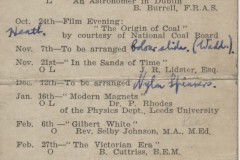 An Astronomer in Dublin
B. Burrell, F.R.A.S.
Oct. 24th—Film Evening:
"The Origin of Coal"
Heath. by courtesy of National Coal Board
Nov. 7th—To be arranged Colour slides. (Webb).
Nov. 21st—"In the Sands of Time"
O L J. R. Lidster, Esq.
Dec. 12th—To be arranged Nylon Spinners.
Jan. 16th—"Modern Magnets"
O L Dr. P. Rhodes
of the Physics Dept., Leeds University
Feb. 6th—"Gilbert White"
O Rev. Selby Johnson, M.A., M.Ed,
Feb. 27th—"The Victorian Era"
O B. Cuttriss, B.E.M.